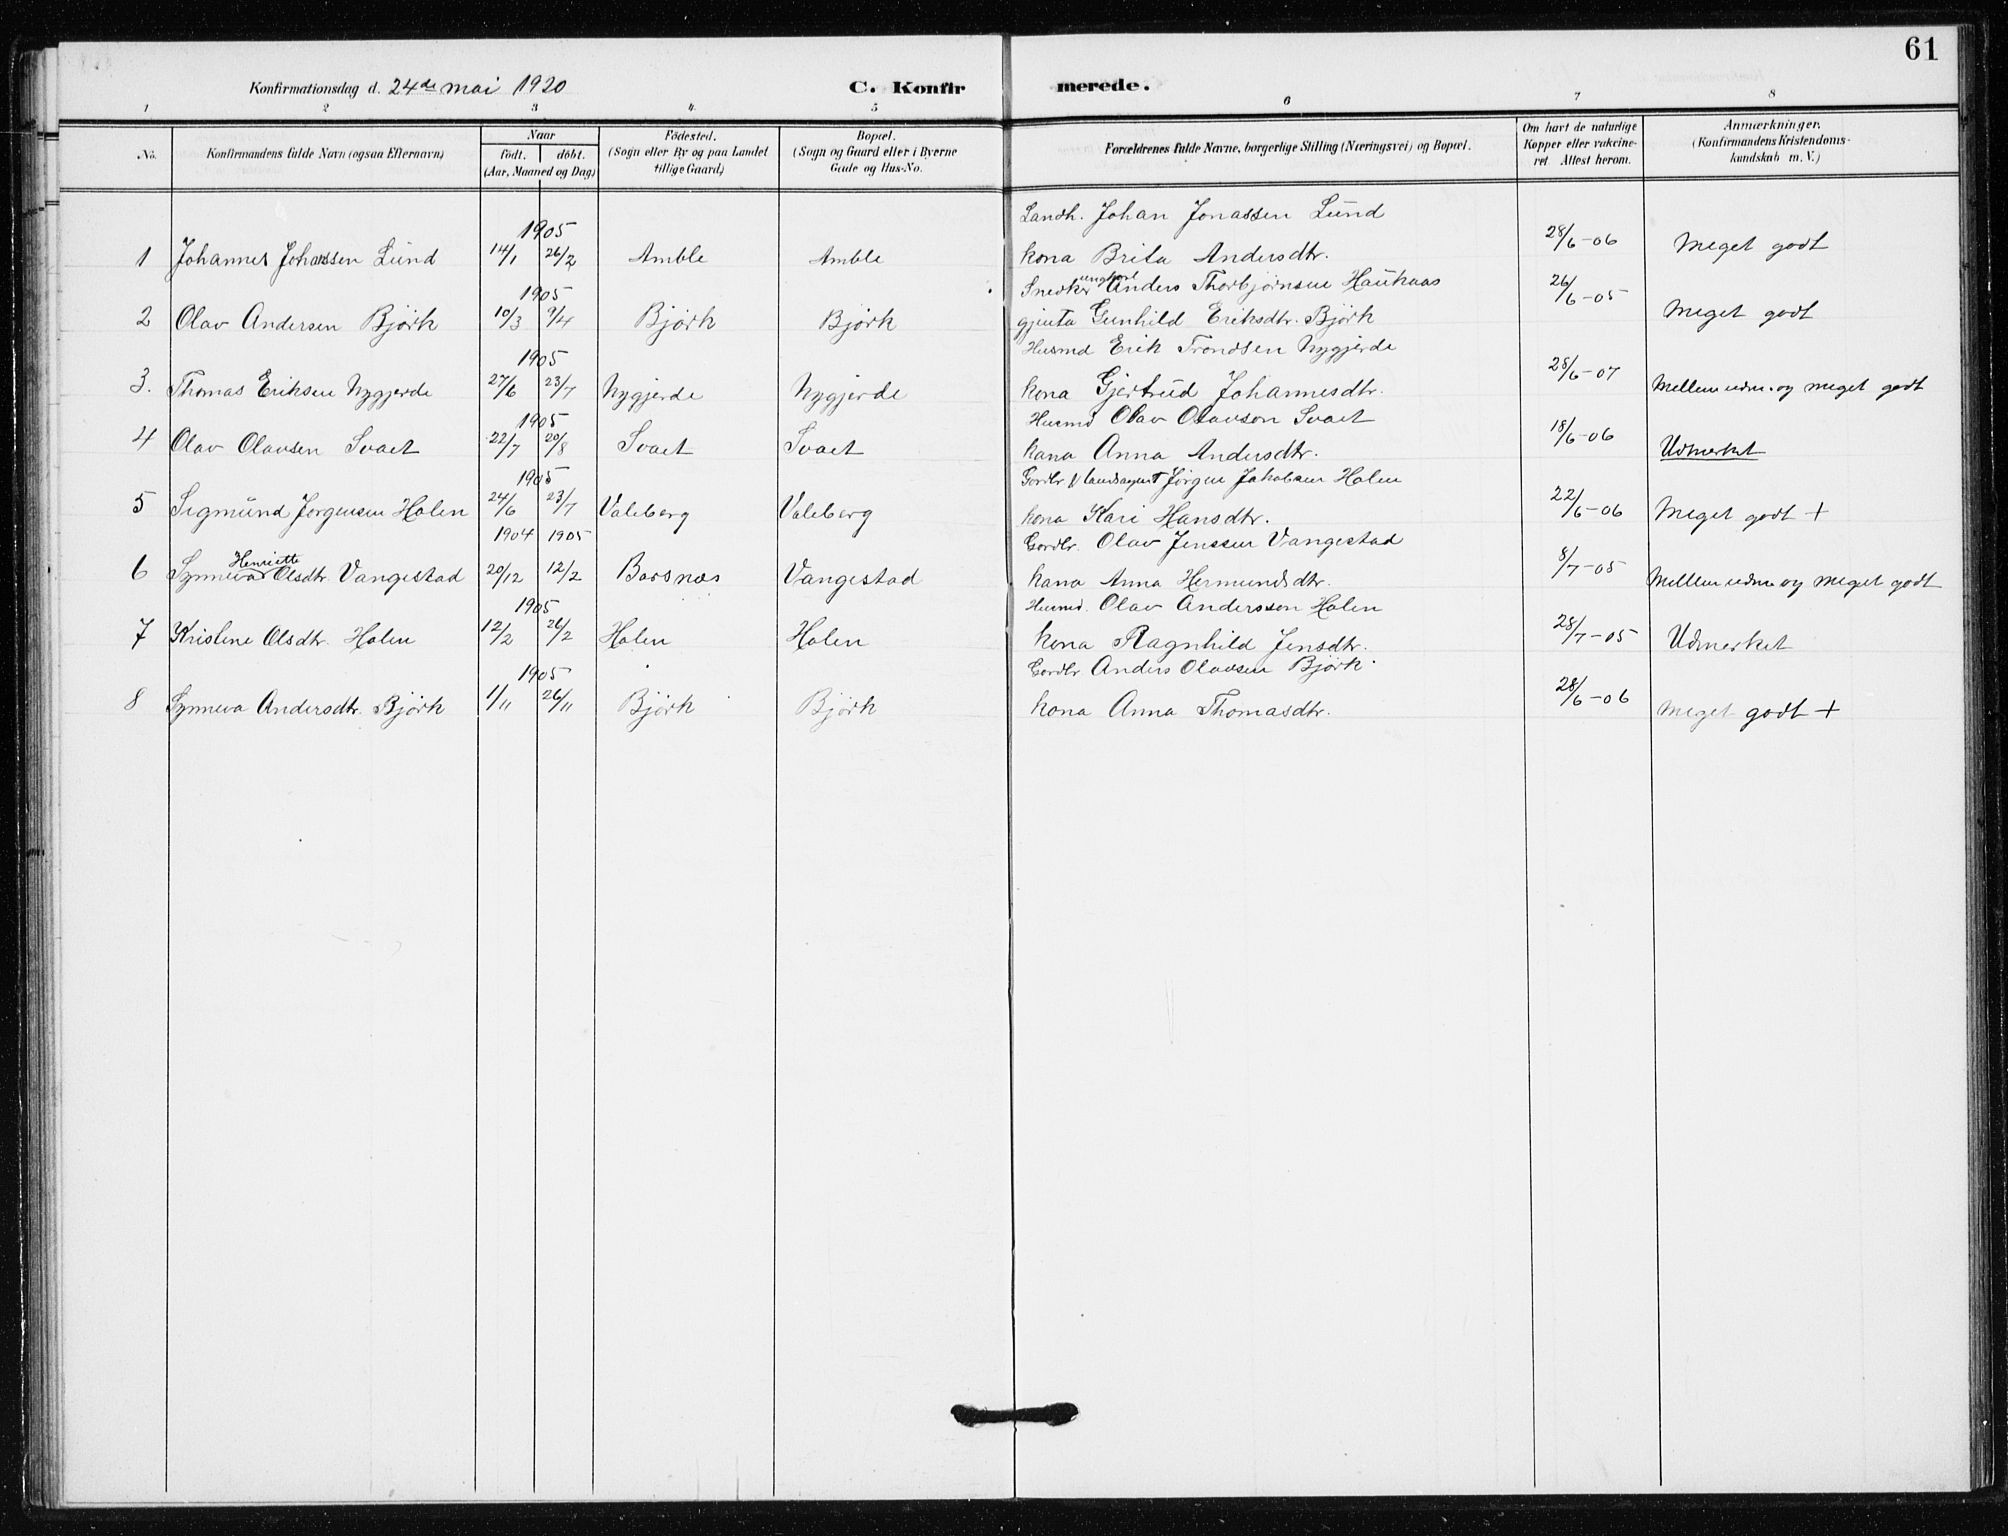 61
Konfirmationsdag d. 24de mai 1920 C. Konfirmerede.
1 2 3 4. 5 6 7 8
No. Konfirmandens fulde Navn (ogsaa Efternavn) Naar født. døbt. (Aar, Maaned og Dag) Fødested. (Sogn eller By og paa Landet tillige Gaard) Bopæl. (Sogn og Gaard eller i Byerne Gade og Hus-No. Forældrenes fulde Navne, borgerlige Stilling (Næringsvei) og Bopæl. Om havt de naturlige Kopper eller vakcineret. Attest herom. Anmærkninger. (Konfirmandens Kristendomskundskab m. V.)
1905 Landh. Johan Jonassen Lund
1 Johannes Johassen Lund 14/1 26/2 Amble Amble kona Brita Andersdtr. 28/6-06 Meget godt
1905 Snedker ungkarl Anders Thorbjørnsen Haukaas
2 Olav Andersen Björk 10/3 9/4 Björk Björk gjenta Gunhild Eriksdtr. Björk 26/6-05 Meget godt
1905 Husmd Erik Trondsen Nygjerde
3. Thomas Eriksen Nygjerde 27/6 23/7 Nygjerde Nygjerde kona Gjertrud Johannesdtr. 28/6-07 Mellem udm. og meget godt
1905 Husmd Olav Olavson Svaet
4 Olav Olavsen Svaet 22/7 20/8 Svaet Svaet kana Anna Andersdtr. 18/6-06 Udmerket
1905 Gordbr landsagent Jørgen Jakobsen Holen
5 Sigmund Jørgensen Holen 24/6 23/7 Valeberg Valeberg kona Kari Hansdtr. 22/6-06 Meget godt +
1904 1905 Gordbr. Olav Jenssen Vangestad
6 Synneva Henriette Olsdtr. Vangestad 20/12 12/2 Barsnæs Vangestad kana Anna Hermundsdtr. 8/7-05 Mellem udm og meget godt
1905 Husmd. Olav Anderssen Holen
7 Kristine Olsdtr. Holen 12/2 26/2 Holen Holen kona Ragnhild Jensdtr. 28/7-05 Udmerket
1905 Gordbr Anders Olavsen Björk.
8 Synneva Andersdtr. Björk 1/11 26/11 Björk Björk kona Anna Thomasdtr. 28/6-06 Meget godt +